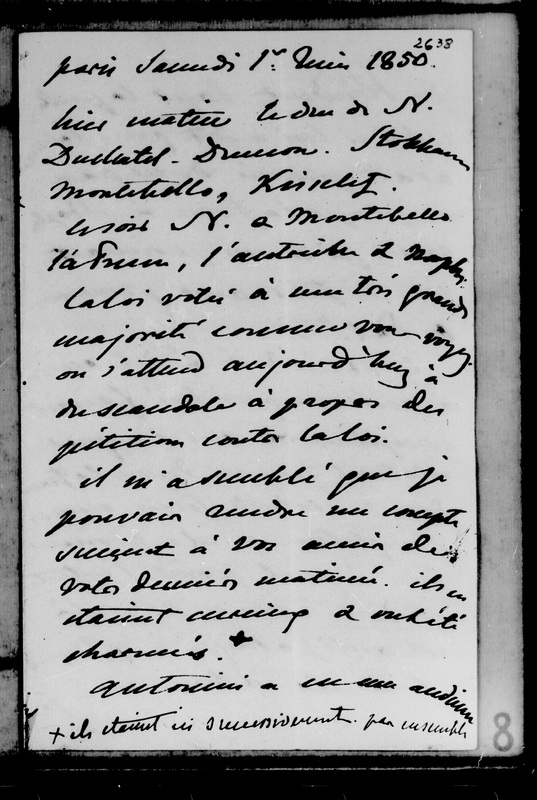 2638
paris Samedi 1er Juin 1850.
hier matin le duc de N.
Duchatel. Dumon. Stokhausen
Montebello, Kisseleff.
le soir N. & Montebello
la loi votée à une très grande
majorité comme vous voyez.
on s'attend aujourd'hui à
du scandale à propos des
pétitions contre la loi.
il m'a semblé que je
pouvais rendre un compte
succinct à vos amis de
votre dernière matinée. ils en
étaient curieux & ont été
charmés. +
Antonini a eu une audience
+ ils étaient ici successivement. pas ensemble
8